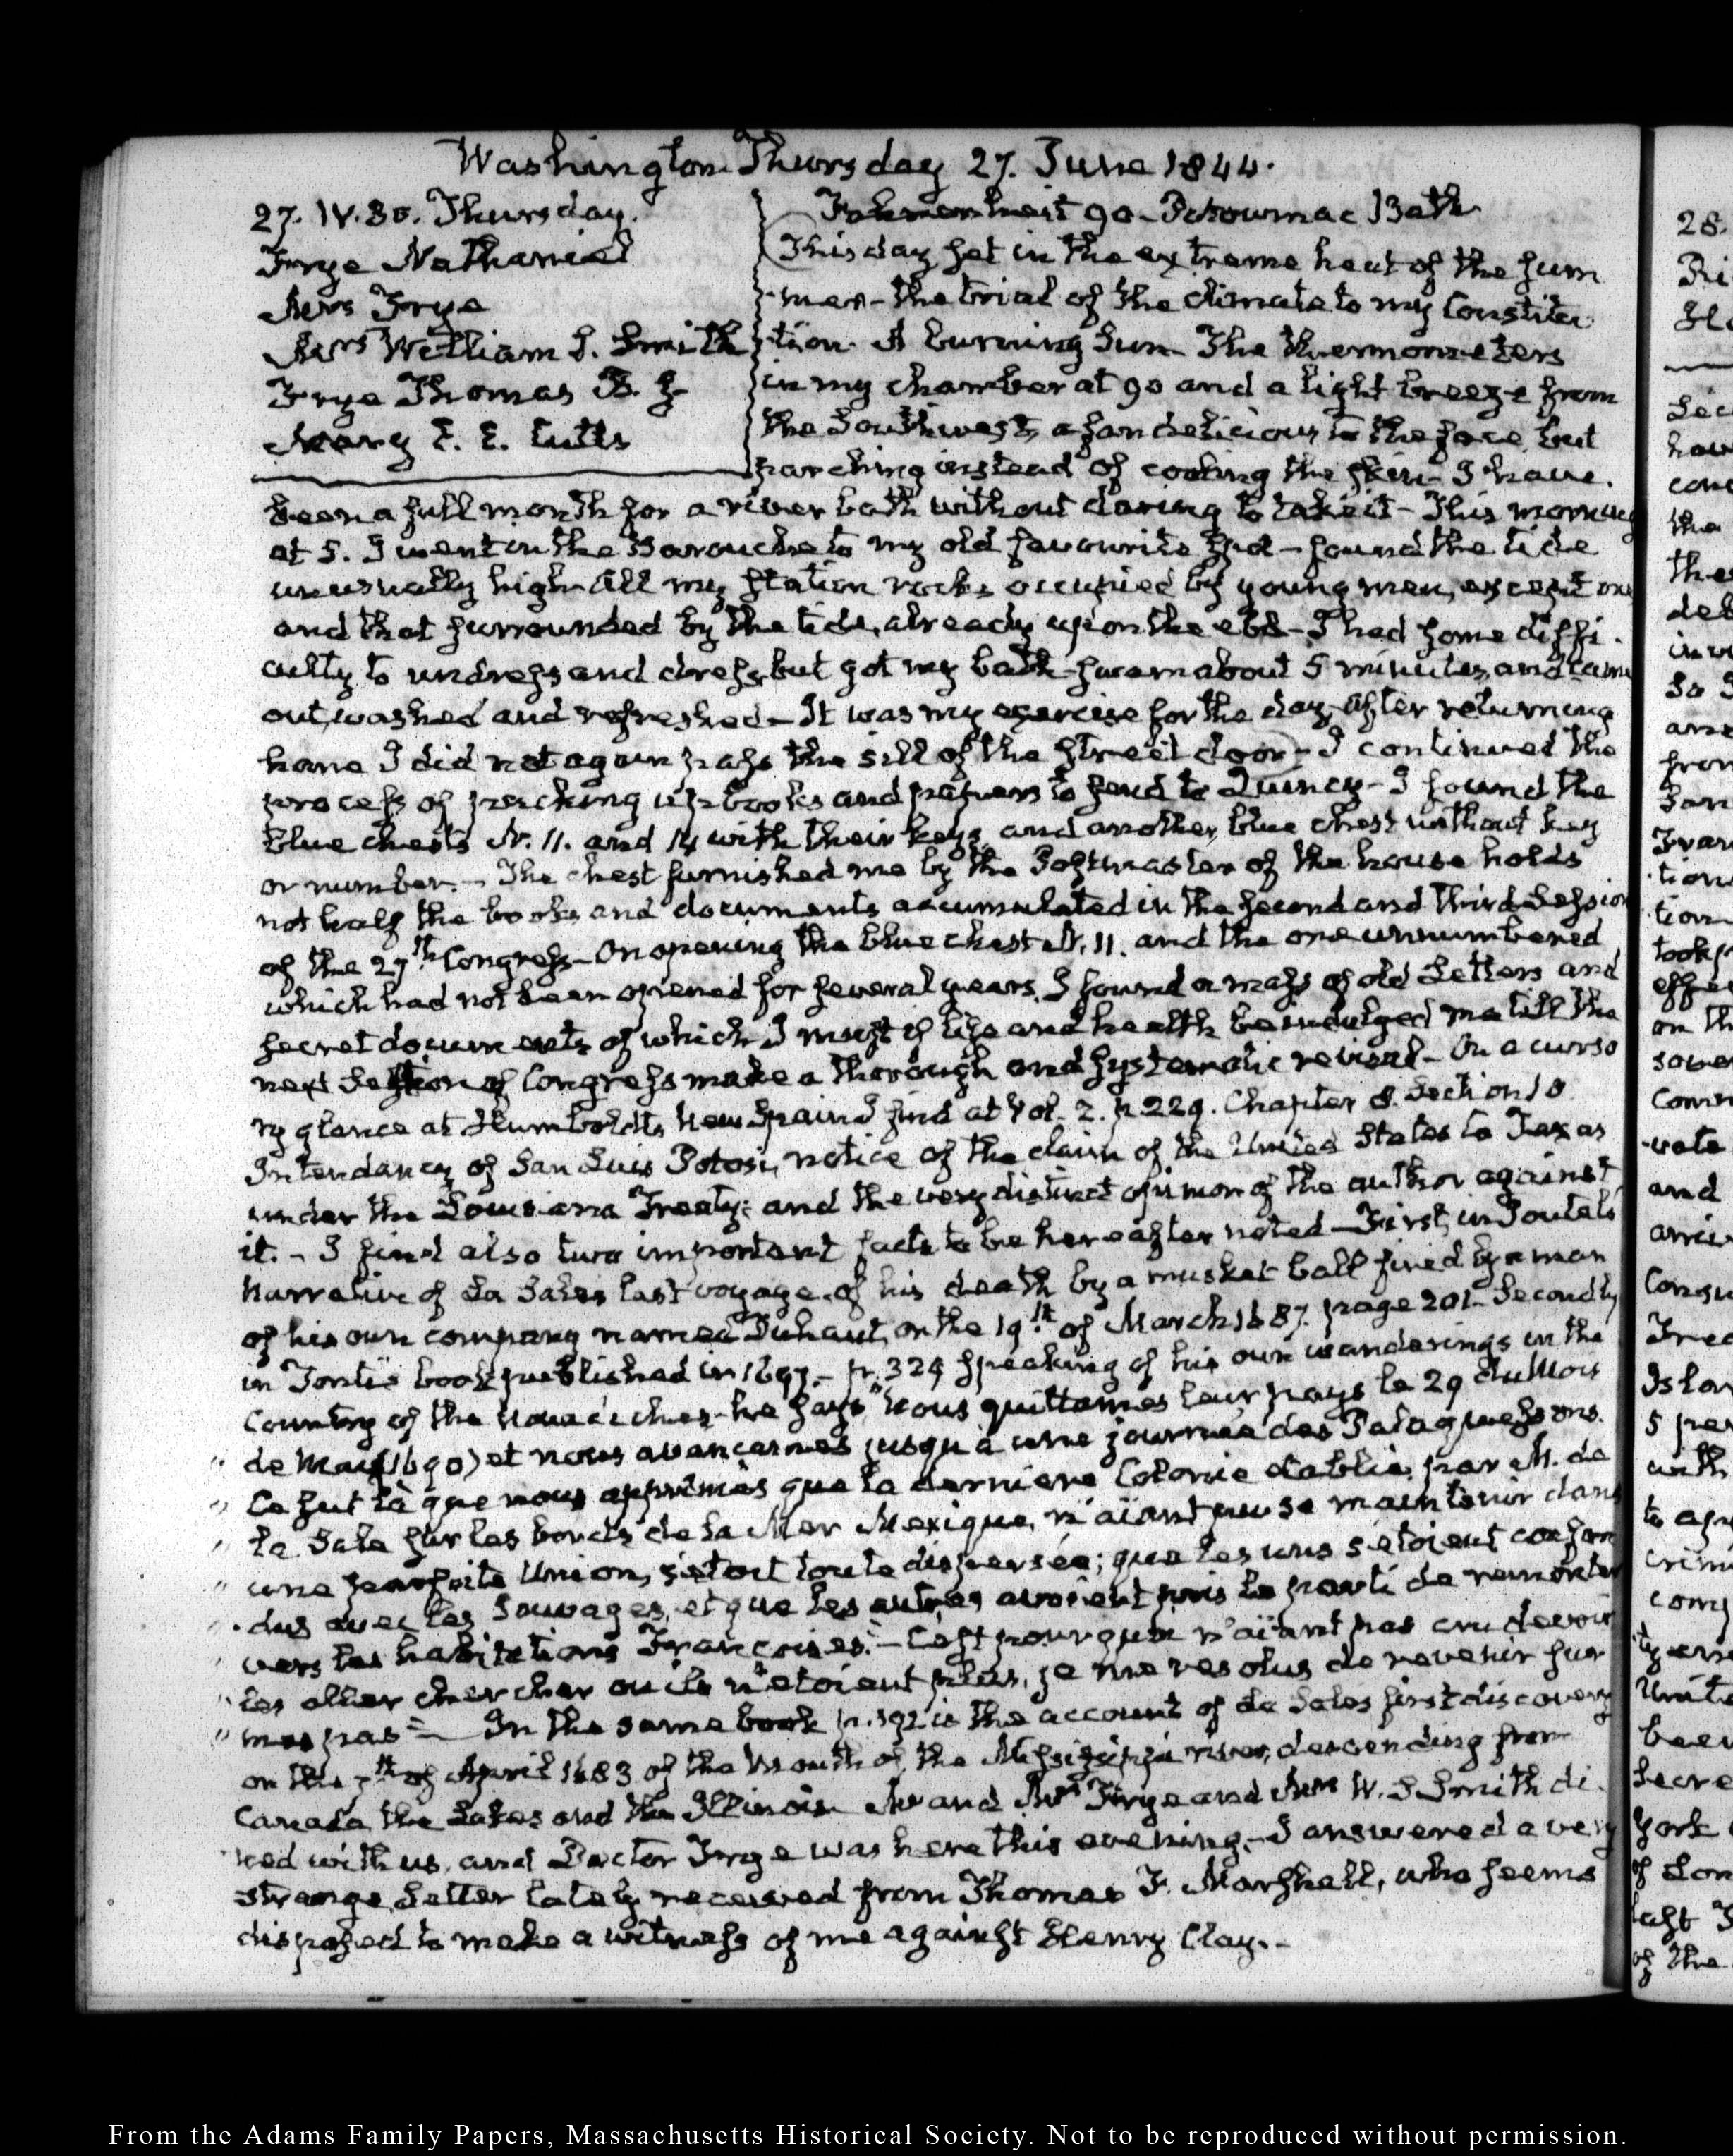 Washington Thursday 27. June 1844.
27. IV.30. Thursday.
Frye Nathaniel
Mrs Frye
Mrs William S. Smith
Frye Thomas B. J.
Mary E. E. Cutts
Fahrenheit 90 - Potowmac Bath
This day set in the extreme heat of the sum
mer - the trial of the climate to my Constitu
tion. A burning Sun - The thermometers
in my chamber at 90 and a light breeze from
the Southwest, a fan delicious to the face, but
parching instead of cooling the skin - I have
been a full month for a river bath without daring to take it - This morning
at 5. I went in the Barouche to my old favourite spot - found the tide
unusually high all my station rocks occupied by young men, except one
and that surrounded by the tide, already upon the ebb - I had some diffi
culty to undress and dress, but got my bath - swam about 5 minutes, and came
out, washed and refreshed - It was my exercise for the day, after returning
home I did not again pass the sill of the street door - I continued the
process of packing up books and papers to send to Quincy - I found the
blue chests N. 11. and 14 with their keys, and another, blue chest without key
or number. - The chest furnished me by the Postmaster of the house holds
not half the books and documents accumulated in the second and third Session
of the 27th Congress - On opening the blue chest N. 11. and the one unnumbered
which had not been opened for several years, I found a mass of old Letters and
secret documents of which I must if life and health be indulged me till the
next Session of Congress make a thorough and systematic revisal - On a curso
ry glance at Humboldt's New Spain I find at Vol. 2. p. 229. Chapter 8. Section 10
Intendancy of San Luis Potosi, notice of the claim of the United States to Texas
under the Louisiana Treaty: and the very distinct opinion of the author against
it. - I find also two important facts to be hereafter noted - First, in Joutel's
Narrative of La Sales last voyage, of his death by a musket ball fired by a man
of his own company named Duhaut, on the 19th of March 1687. page 201 - Secondly
in Tonti's book published in 1697. - p. 324 speaking of his own wanderings in the
Country of the - he says, "Nous quittames leur pays le 29 du Mois
" de May (1690) et nous avançames jusqu'à une journée des
" Ce fut là que nous apprîmes que la derniere Colonie établie par M. de
" la Sale sur les bords de la Mer Mexique, n'aïant pu se maintenir dans
" une parfaite Union, s'étoit toute dispersée; que les uns s'étoient confon
" dus avec les Sauvages, et que les autres avoient pris le parti de remonter
" vers les habitations Françoises. - C'est pourquoi n'aïant pas cru devoir
" les aller chercher où ils n'étoient plus, je me resolus de revenir sur
" mes pas" - In the same book p. 192 is the account of de Sales first discovery
on the 7th of April 1683 of the mouth of the Mississippi river, descending from
Canada the Lakes and the Illinois. Mr and Mrs Frye and Mrs W. S Smith di
ned with us, and Doctor Frye was here this evening. - I answered a very
strange Letter lately received from Thomas F. Marshall, who seems
disposed to make a witness of me against Henry Clay. -
From the Adams Family Papers, Massachusetts Historical Society. Not to be reproduced without permission.